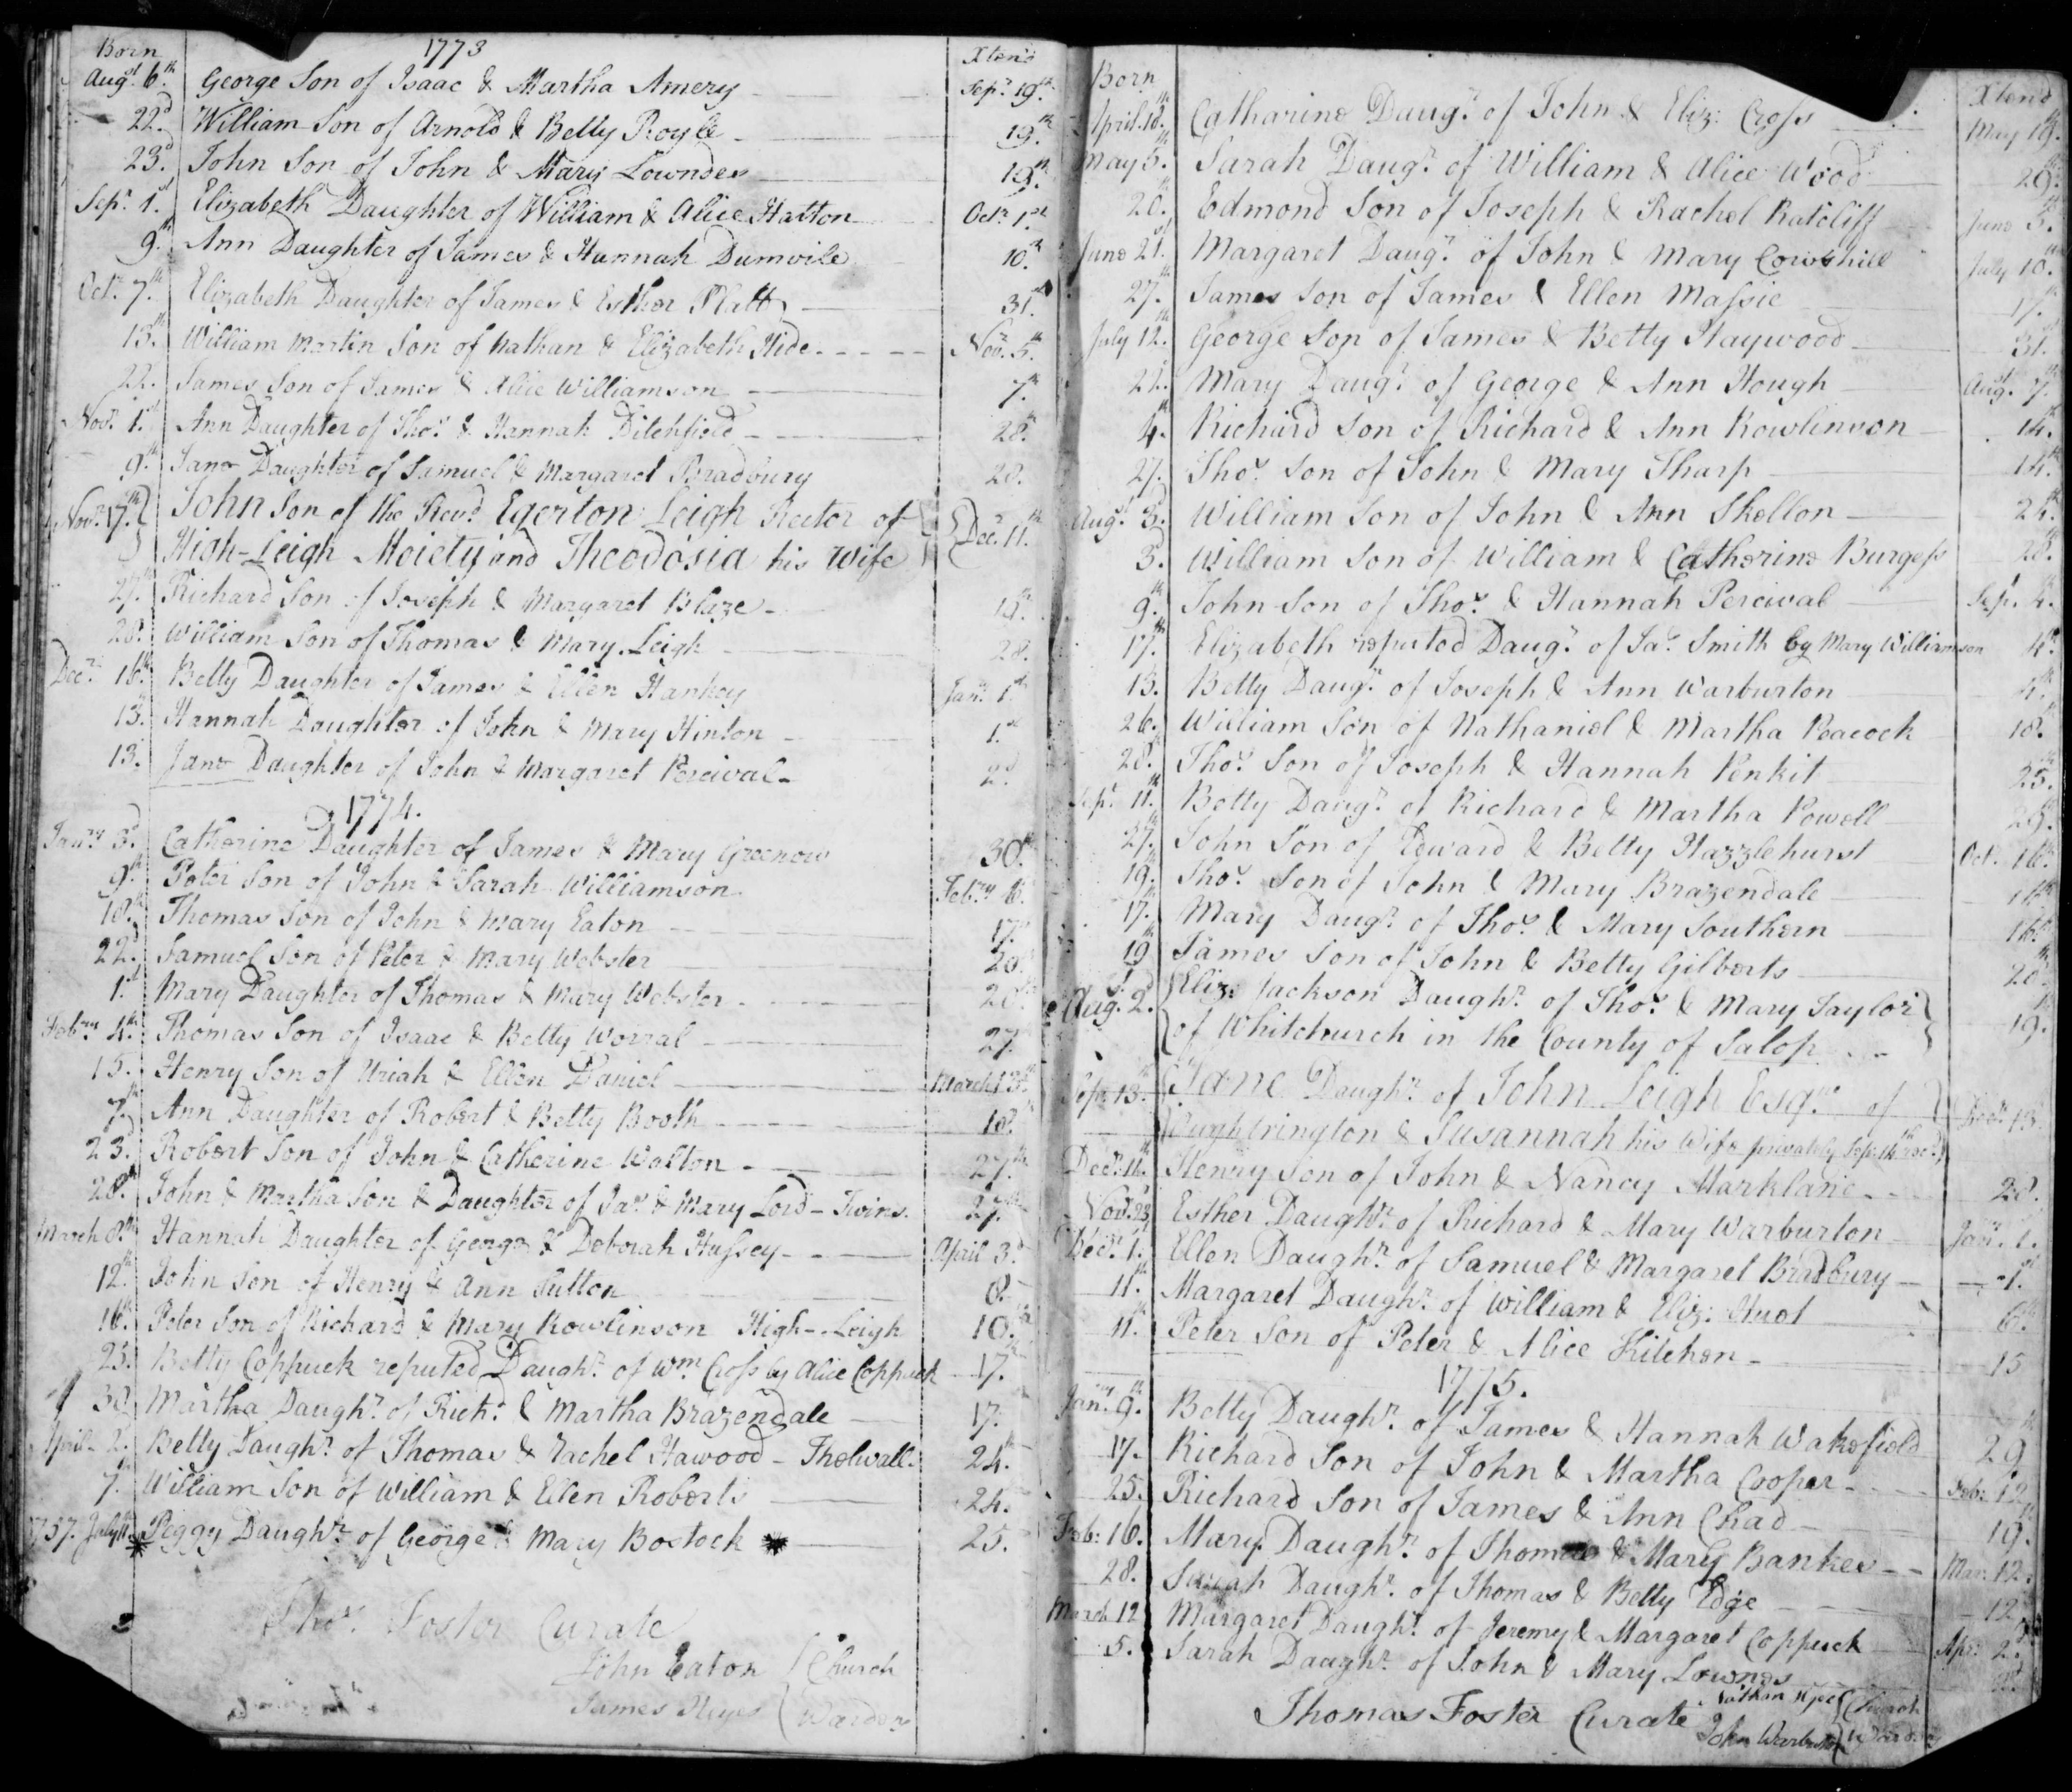 Born 1773 Xten'd
Augst. 6th. George Son of Isaac & Martha Amery Sepr. 19th.
22d. William Son of Arnold & Betty Royle 19th.
23d. John Son of John & Mary Lowndes 19th.
Sepr. 1st. Elizabeth Daughter of William & Alice Hatton Octr. 1st.
9th. Ann Daughter of James & Hannah Dumvile 10th.
Octr. 7th. Elizabeth Daughter of James & Esther Platt 31st.
13th. William Martin Son of Nathan & Elizabeth Hide Novr. 5th.
22. James Son of James & Alice Williamson 7th.
Novr. 1st. Ann Daughter of Thos. & Hannah Ditchfield 28th.
9th. Jane Daughter of Samuel & Margaret Bradbury 28.
Novr. 17th. John Son of the Revd. Egerton Leigh Rector of Decr. 11th.
High-Leigh Moiety and Theodosia his Wife
27th. Richard Son of Joseph & Margaret Blaze 19th.
28. William Son of Thomas & Mary Leigh 28.
Decr. 16th. Betty Daughter of James & Ellen Hankey Janry. 1st.
13. Hannah Daughter of John & Mary Hinton 1st.
13. Jane Daughter of John & Margaret Percival 2d.
1774.
Janry. 3d. Catherine Daughter of James & Mary Greenow 30th.
9th. Peter Son of John & Sarah Williamson Febry. 6.
18th. Thomas Son of John & Mary Eaton 17th.
22d. Samuel Son of Peter & Mary Webster 20.
1st. Mary Daughter of Thomas & Mary Webster 20.
Febry. 4th. Thomas Son of Isaac & Betty Worral 27.
15. Henry Son of Uriah & Ellen Daniel March 13th.
7th. Ann Daughter of Robert & Betty Booth 18.
23. Robert Son of John & Catherine Walton 27th.
20th. John & Martha Son & Daughter of Jas. & Mary Lord - Twins. 27.
March 8th. Hannah Daughter of George & Deborah Hussey April 3d.
12th. John Son of Henry & Ann Sutton 8.
16th. Peter Son of Richard & Mary Rowlinson High-Leigh 10th.
23. Betty Coppuck reputed Daughr. of Wm. Cross by Alice Coppuck 17.
30. Martha Daughr. of Richd. & Martha Brazendale 17.
April 2. Betty Daughr. of Thomas & Rachel Hawood - Thelwall. 24th.
7. William Son of William & Ellen Roberts 24.
1757. July 11. * Peggy Daughr. of George & Mary Bostock * 25.
Thos. Foster Curate
John Eaton Church
James Heyes Wardens
Born Xten'd
April 18th. Catharine Daugr. of John & Eliz: Cross May 18.
May 5th. Sarah Daugr. of William & Alice Wood 29.
20th. Edmond Son of Joseph & Rachel Ratcliff June 5.
June 21st. Margaret Daugr. of John & Mary Cowshill July 10th.
27th. James Son of James & Ellen Massie 17.
July 12th. George Son of James & Betty Haywood 31.
22. Mary Daugr. of George & Ann Hough Augt. 7th.
4th. Richard Son of Richard & Ann Rowlinson 14th.
27. Thos. Son of John & Mary Tharp 14th.
Augt. 3. William Son of John & Ann Shelton 24.
3. William Son of William & Catherine Burgess 28.
9th. John Son of Thos. & Hannah Percival Sepr. 4.
17th. Elizabeth reputed Daugr. of Jas. Smith by Mary Williamson 4th.
13. Betty Daugr. of Joseph & Ann Warburton 4th.
26. William Son of Nathaniel & Martha Peacock 18.
28th. Thos. Son of Joseph & Hannah Penkit 25.
Sepr. 11th. Betty Daugr. of Richard & Martha Powell 29.
27. John Son of Edward & Betty Hazzlehurst Oct. 16th.
19. Thos. Son of John & Mary Brazendale 16th.
17. Mary Daugr. of Thos. & Mary Southern 16th.
19 James Son of John & Betty Gilberts 20th.
Aug. 2d. Eliz: Jackson Daughr. of Thos. & Mary Taylor 19.
of Whitchurch in the County of Salop
Sepr. 13th. Jane Daughr. of John Leigh Esqre. of Decr. 13.
Oughtrington & Susannah his Wife privately Sepr. 14th
Decr. 11th. Henry Son of John & Nancy Marklane 28.
Novr. 23. Esther Daughr. of Richard & Mary Warburton Janry. 1.
Decr. 1. Ellen Daughr. of Samuel & Margaret Bradbury 1st.
11th. Margaret Daughr. of William & Eliz: Hust 6th.
11th. Peter Son of Peter & Alice Kitchen 15
1775.
Janry. 9th. Betty Daughr. of James & Hannah Wakefield 29
17. Richard Son of John & Martha Cooper Feb: 12
25. Richard Son of James & Ann Chad 19.
Feb: 16. Mary Daughr. of Thomas & Mary Bankes Mar. 12.
28. Sarah Daughr. of Thomas & Betty Edge 12
March 12 Margaret Daughr. of Jeremy & Margaret Coppuck Apr. 2d.
5. Sarah Daughr. of John & Mary Lownes 2d.
Thomas Foster Curate Nathan Hyde Church
John Warburton Wardens